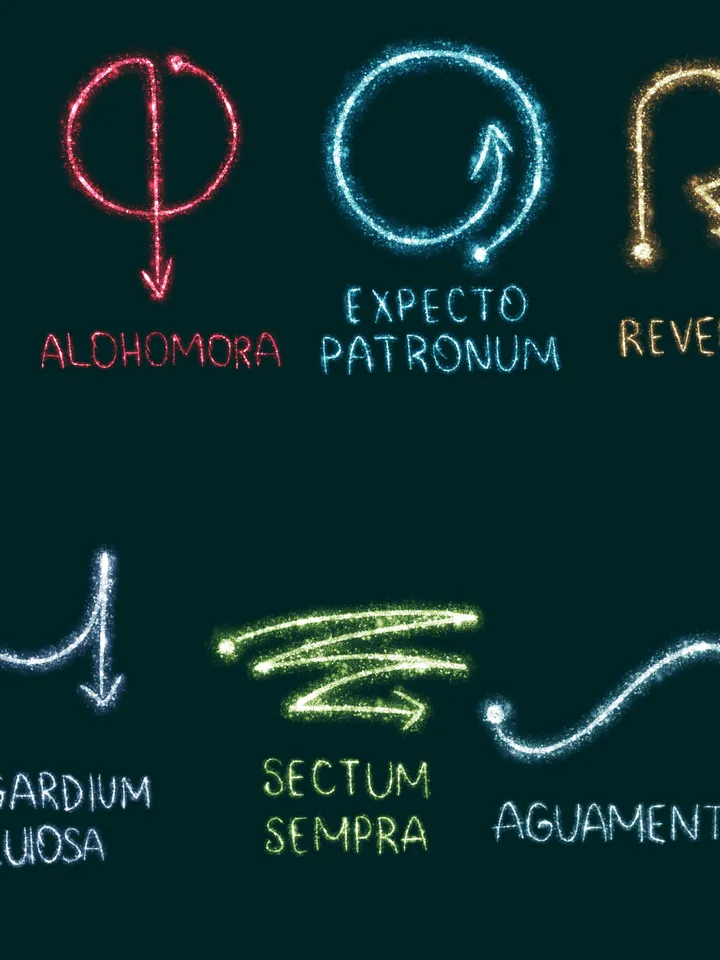 ALOHOMORA
EXPECTO
PATRONUM
REVE
GARDIUM
UIOSA
SECTUM
SEMPRA
AGUAMENT